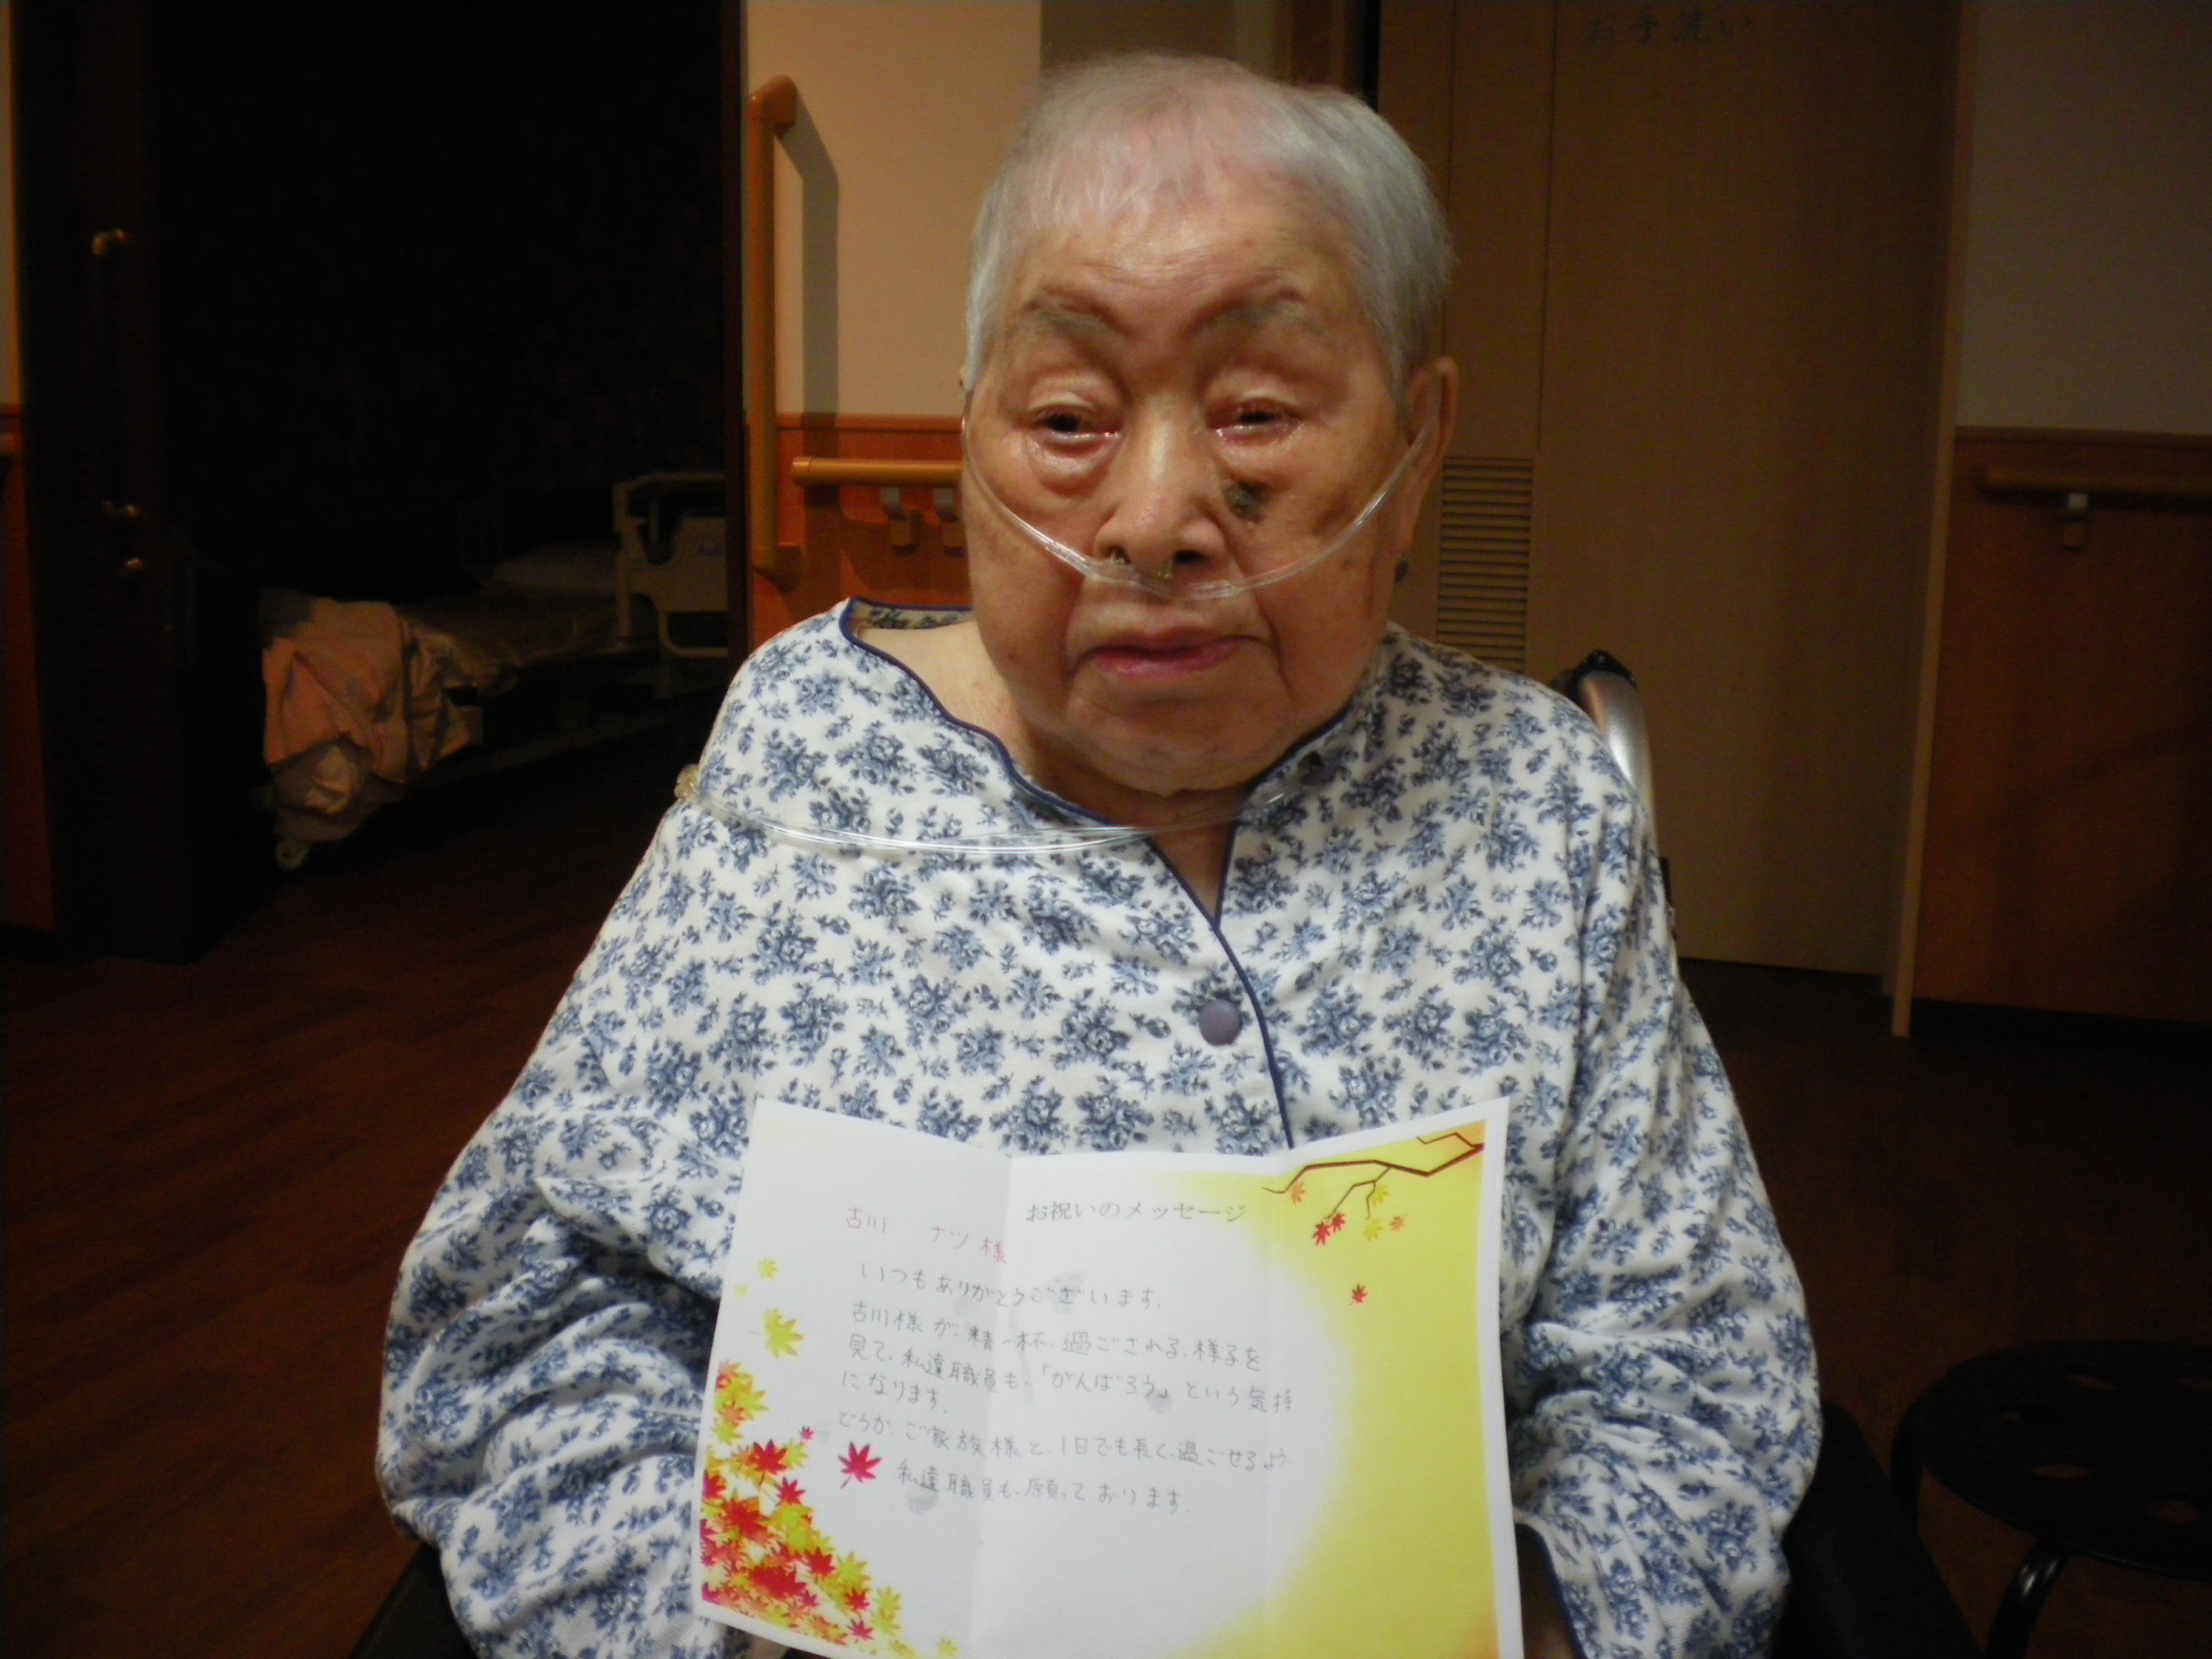 お手洗い
お祝いのメッセージ
古川 ナツ 様
いつもありがとうございます.
古川様が、精一杯、過ごされる、様子を
見て、私達職員も、「がんばろう」という気持
になります.
どうか、ご家族様と、1日でも長く、過ごせるよう
私達職員も、願っております.